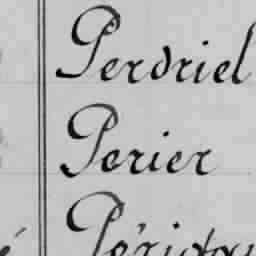 Perdriel
Perier